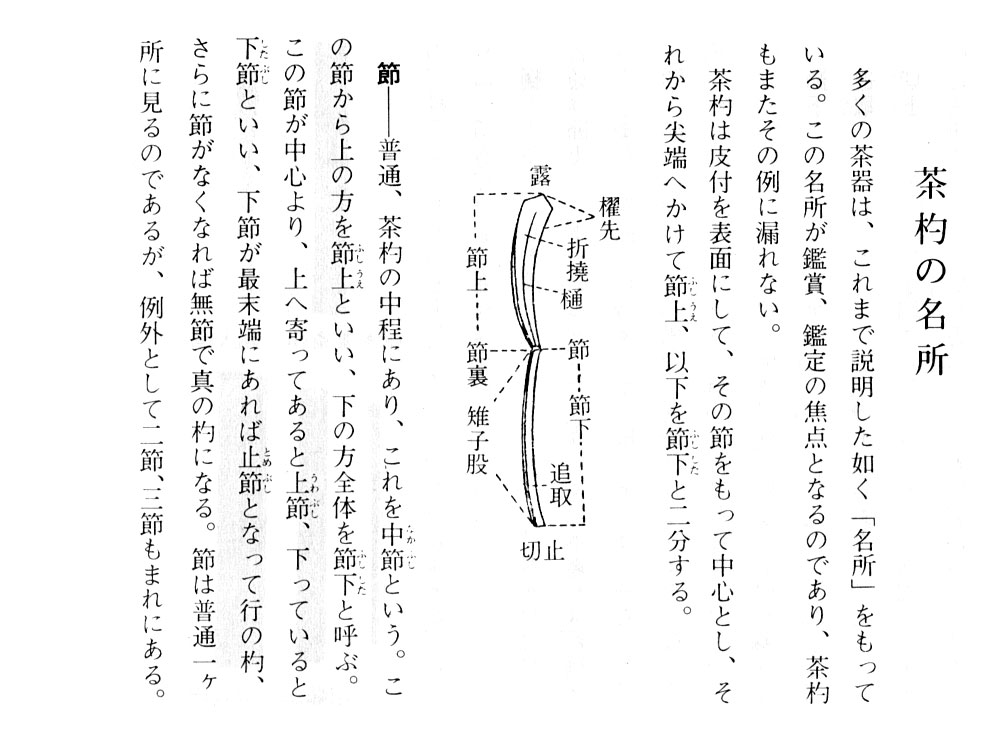 茶杓の名所
多くの茶器は、これまで説明した如く「名所」をもって
いる。この名所が鑑賞、鑑定の焦点となるのであり、茶杓
もまたその例に漏れない。
茶杓は皮付を表面にして、その節をもって中心とし、そ
れから尖端へかけて節上、以下を節下と二分する。
ふしうえ
ふしした
露
櫂先
折撓
樋
節上
節
節裏
節下
雉子股
追取
切止
節──普通、茶杓の中程にあり、これを中節という。こ
なかふし
の節から上の方を節上といい、下の方全体を節下と呼ぶ。
ふしうえ
ふしした
この節が中心より、上へ寄ってあると上節、下っていると
うわぶし
下節といい、下節が最末端にあれば止節となって行の杓、
したぶし
とめぶし
さらに節がなくなれば無節で真の杓になる。節は普通一ヶ
所に見るのであるが、例外として二節、三節もまれにある。